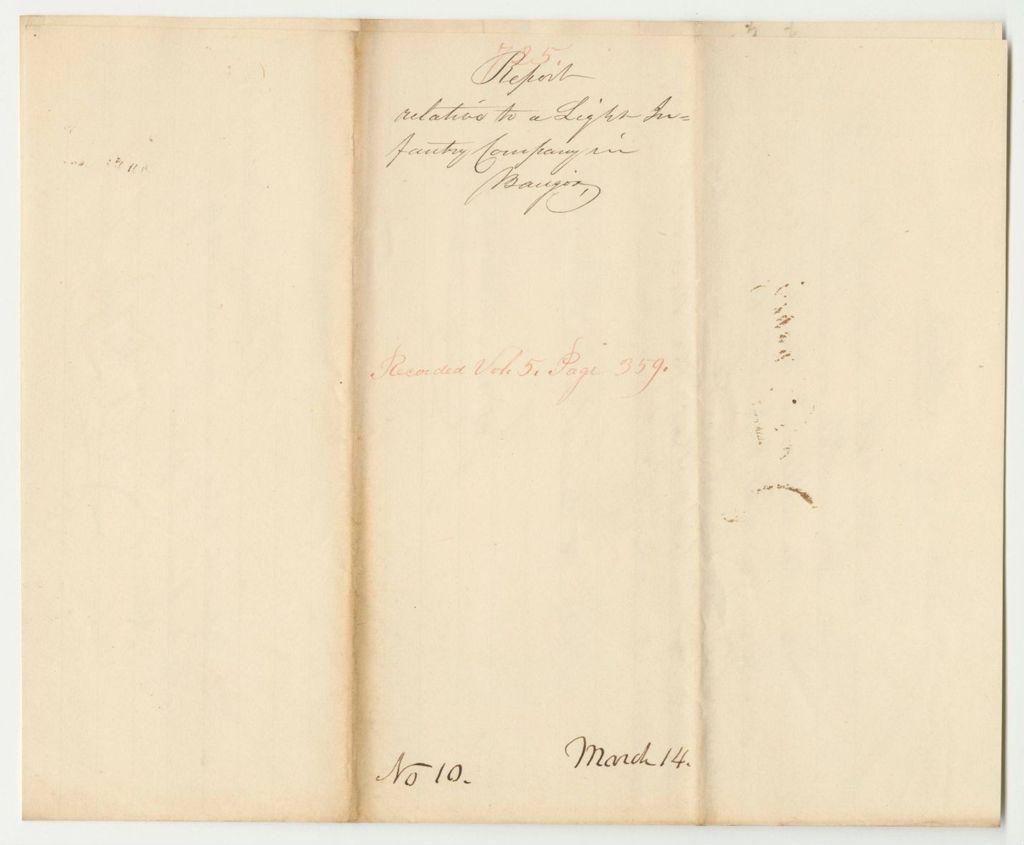 725.
Report
relative to a Light In=
fantry Company in
Bangor,
Recorded Vol. 5. Page 359.
No 10.
March 14.